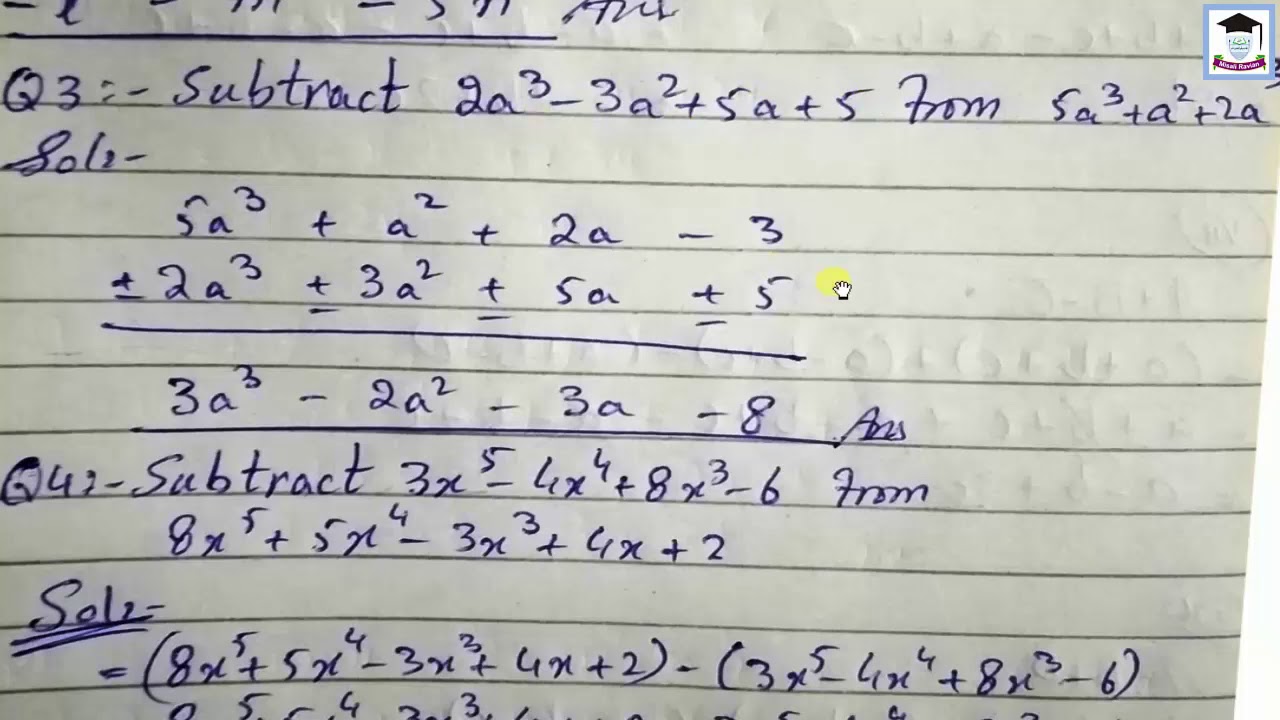 Q3:- Subtract 2a³-3a²+5a+5 from 5a³+a²+2a
Sol:-
5a³ + a² + 2a - 3
± 2a³ ± 3a² ± 5a ± 5
3a³ - 2a² - 3a - 8 Ans
Q4:- Subtract 3x⁵-4x⁴+8x³-6 from
8x⁵+5x⁴-3x³+4x+2
Sol:-
= (8x⁵+5x⁴-3x³+4x+2)-(3x⁵-4x⁴+8x³-6)
Misali Ravian